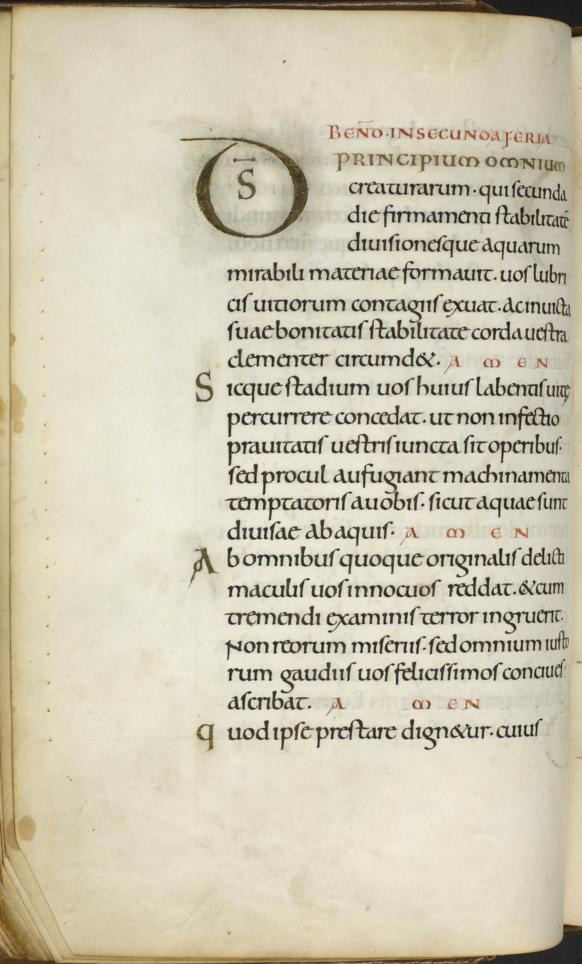 BEÑD·IN SECUNDA FERIA
DS̄ PRINCIPIUM OMNIUM
creaturarum· qui secunda
die firmamenti stabilitatē
diuisionesque aquarum
mirabili materiae formauit. uos lubri
cis uitiorum contagiis exuat· ac inuicta
suae bonitatis stabilitate corda uestra
clementer circumd&. A M E N
Sicque stadium uos huius labentis uitę
percurrere concedat. ut non infectio
prauitatis uestris iuncta sit operibus·
sed procul aufugiant machinamenta
temptatoris a uobis· sicut aquae sunt
diuisae ab aquis· A M E N
Ab omnibus quoque originalis delicti
maculis uos innocuos reddat. & cum
tremendi examinis terror ingruerit.
Non reorum miseriis· sed omnium iusto
rum gaudiis uos felicissimos conciues
ascribat. A M E N
Quod ipse prestare dign&ur· cuius